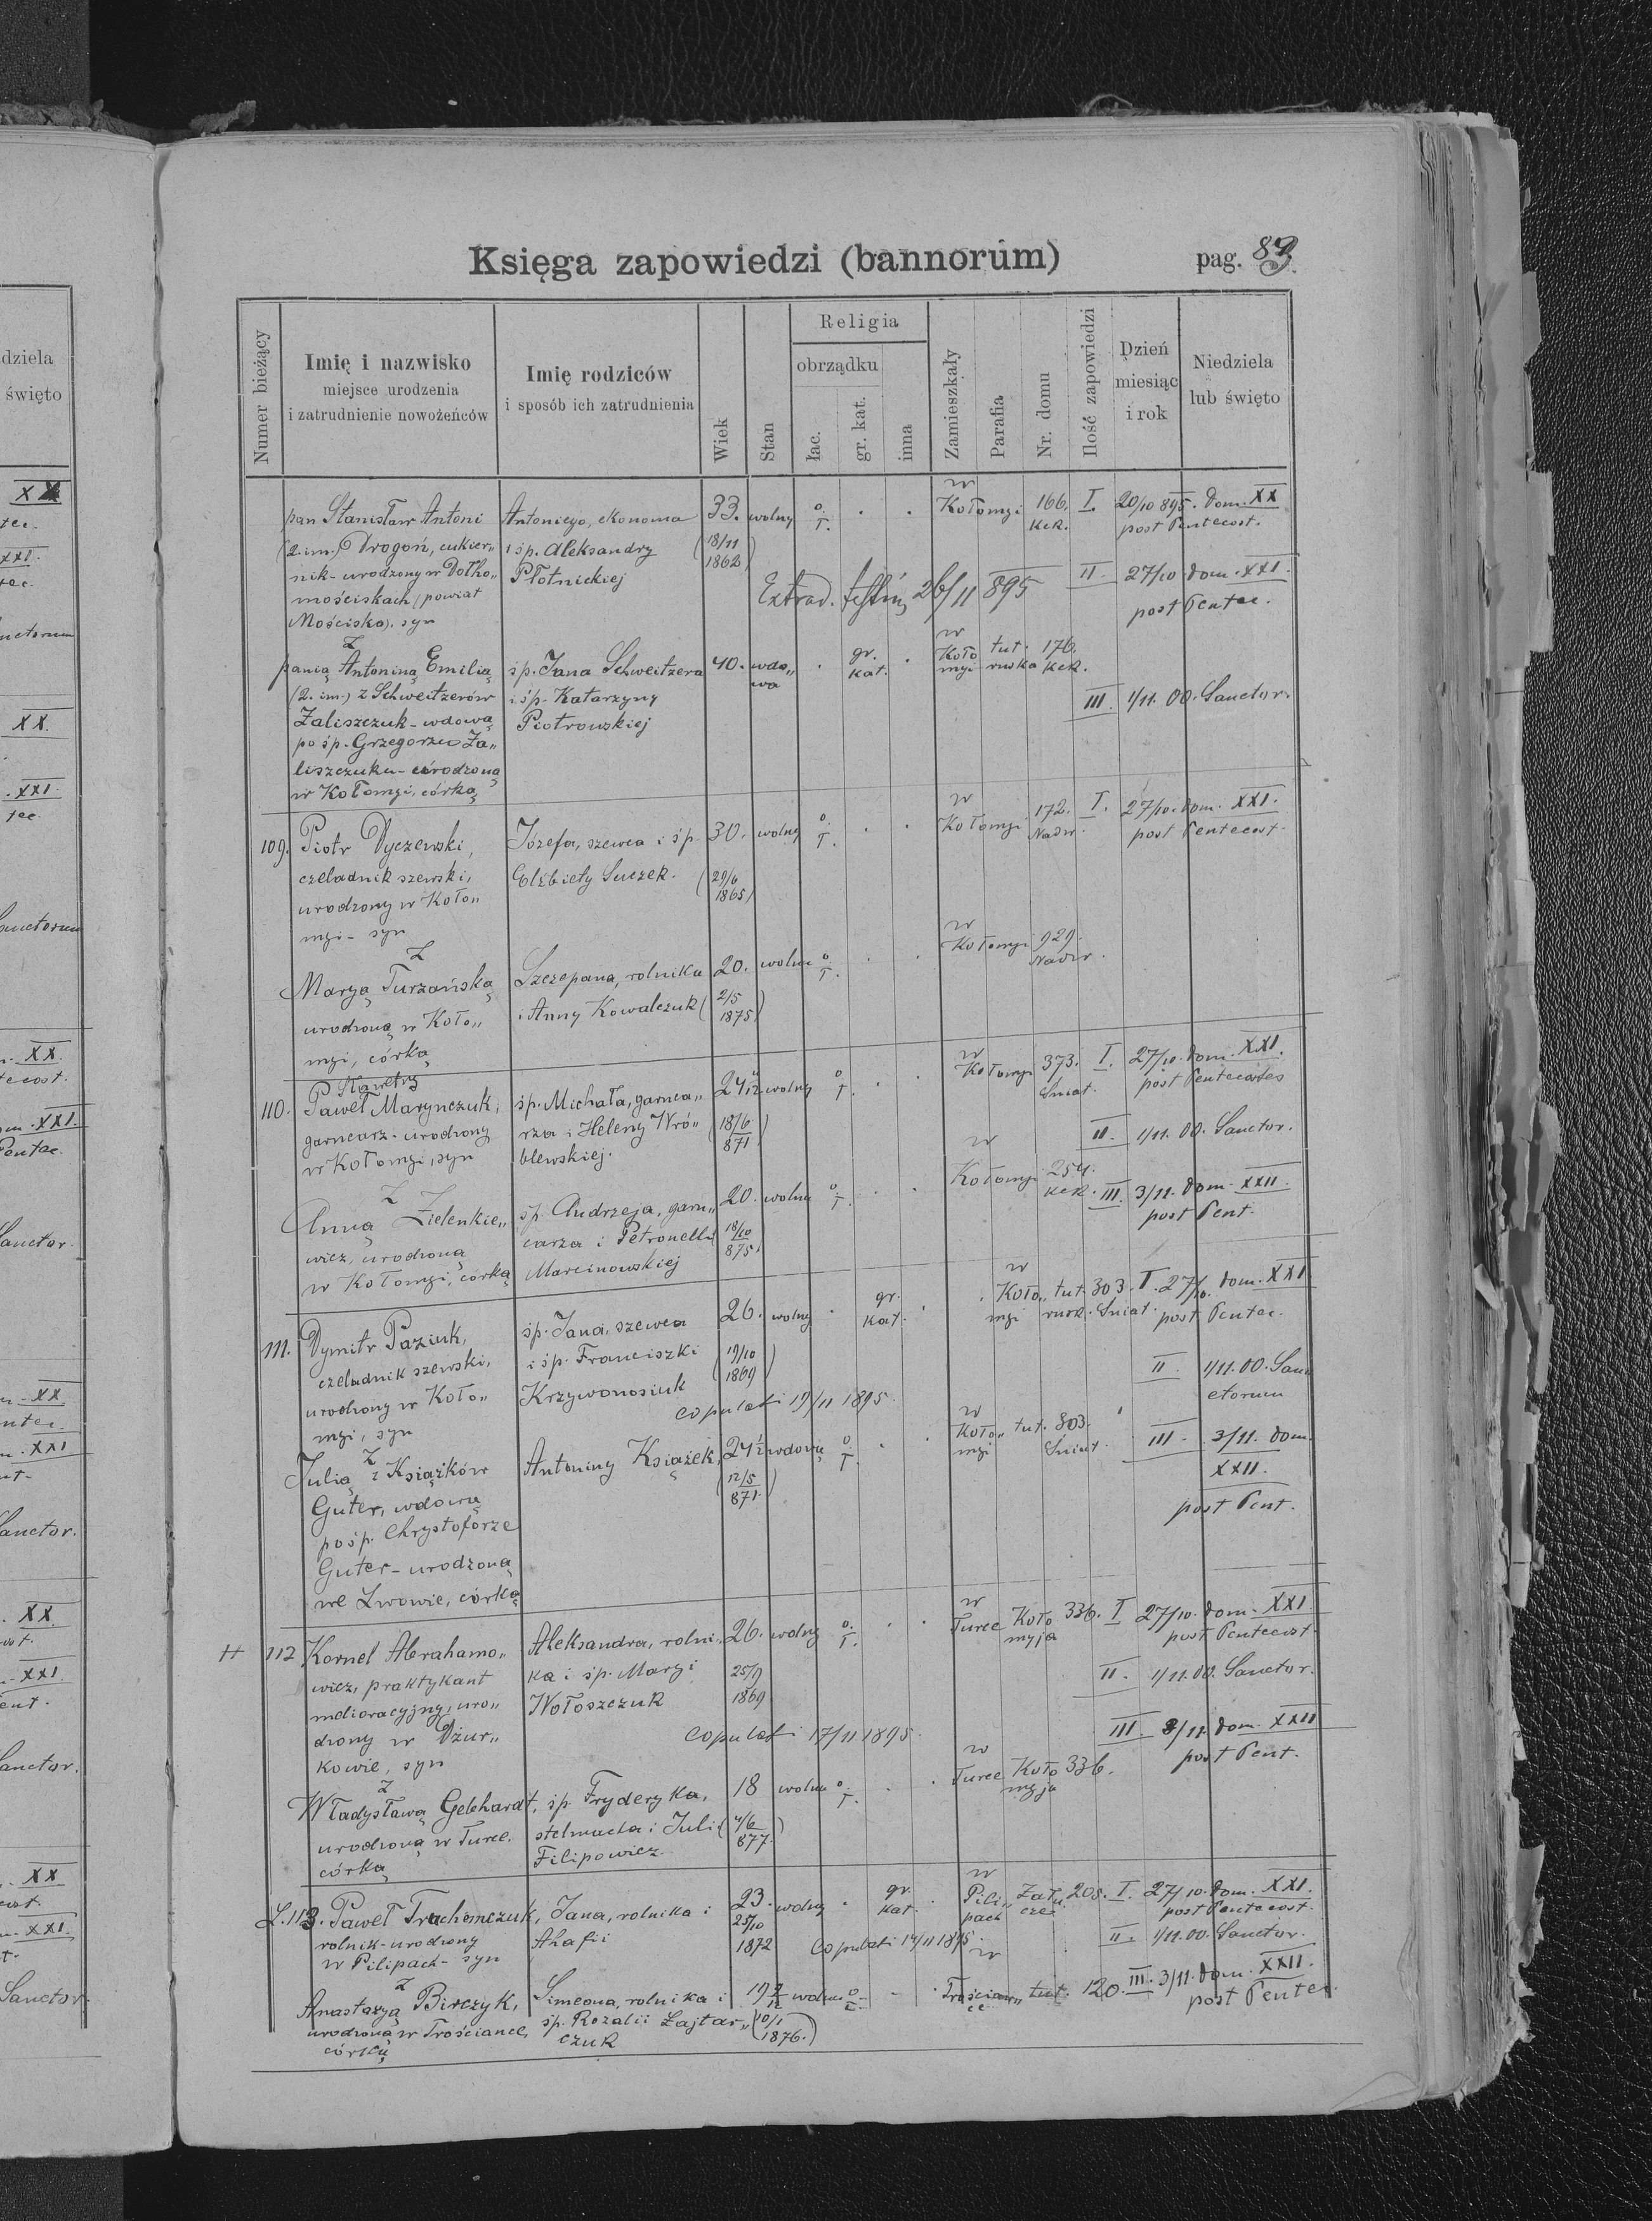 Księga zapowiedzi (bannorum)
pag. 83.
Numer bieżący
Imię i nazwisko
miejsce urodzenia
i zatrudnienie nowożeńców
Imię rodziców
i sposób ich zatrudnienia
Wiek
Stan
Religia
obrządku
łac.
gr. kat.
inna
Zamieszkały
Parafia
Nr. domu
Ilość zapowiedzi
Dzień
miesiąc
i rok
Niedziela
lub święto
pan Stanisław Antoni
(2. im.) Drogoń, cukier„
nik - urodzony w Dołho„
mościskach (powiat
Mościska). syn
Antoniego, ekonoma
i śp. Aleksandry
Płotnickiej
33.
(18/11
1862)
wolny
o.
ł.
w
Kołomyi
166.
kek.
I. 20/10 895. Dom. XX
post Pentecost.
II. 27/10 Dom. XXI.
post Pentec.
Extrad. 26/11 895
Z
panią Antoniną Emilią
(2. im.) z Schweitzerów
Zaliszczuk - wdową
po śp. Grzegorzu Za„
liszczuku - urodzoną
w Kołomyi, córką
śp. Jana Schweitzera
i śp. Katarzyny
Piotrowskiej
40.
wdo„
wa
gr.
kat.
w
Koło
myi
tut.
ruska
176.
kek.
III. 1/11. OO. Sanctor.
109.
Piotr Dyczewski,
czeladnik szewski,
urodzony w Koło„
myi - syn
Józefa, szewca i śp.
Elżbiety Suczek.
30.
(29/6
1865)
wolny
o.
ł.
w
Kołomyi
172.
Nadw.
I. 27/10. Dom. XXI.
post Pentecost.
Z
Maryą Turzańską
urodzoną w Koło„
myi, córką
Szczepana, rolnika
i Anny Kowalczuk
20.
(2/5
1875)
wolna
o.
ł.
w
Kołomyi
929.
Nadw.
110.
Paweł Marynczuk,
garncarz - urodzony
w Kołomyi, syn
śp. Michała, garnca„
rza i Heleny Wró„
blewskiej.
(18/6
871)
wolny
o
ł.
w
Kołomyi
373.
Śniat.
I. 27/10. Dom. XXI.
post Pentecostes
II. 1/11. OO. Sanctor.
Z
Anną Zielenkie„
wicz, urodzoną
w Kołomyi, córką
śp. Andrzeja, garn„
carza i Petroneli
Marcinowskiej
20.
18/10
875.
wolna
o.
ł.
w
Kołomyi
254.
kek.
III. 3/11. Dom. XXII.
post Pent.
111.
Dymitr Paziuk,
czeladnik szewski,
urodzony w Koło„
myi, syn
śp. Jana, szewca
i śp. Franciszki
Krzywonosiuk
26.
(19/10
1869)
wolny
gr.
kat.
w
Koło„
myi
tut.
rusk.
303.
Śniat.
I. 27/10. Dom. XXI
post Pentec.
II. 1/11. OO. San
ctorum
copulati 19/11 1895.
Z
Julią z Książków
Guter, wdową
po śp. Chrystoforze
Guter - urodzoną
we Lwowie, córką
Antoniny Książek,
24½
(12/5
871.)
wdową
o.
ł.
w
Koło„
myi
tut. 303.
Śniat.
III. 3/11. Dom.
XXII.
post Pent.
112
Kornel Abrahamo„
wicz, praktykant
melioracyjny, uro„
dzony w Dżur„
kowie, syn
Aleksandra, rolni„
ka i śp. Maryi
Wołoszczuk
26.
25/9
1869
wolny
o.
ł.
w
Turce
Koło
myja
336.
I 27/10. Dom. XXI.
post Pentecost.
II. 1/11. OO. Sanctor.
III. 3/11. Dom. XXII
post Pent.
copulati 17/11 1895.
Z
Władysławą Gebhardt,
urodzoną w Turce.
córką
śp. Fryderyka,
stelmacha i Juli
Filipowicz
18
(4/6
877.)
wolna
o.
ł.
w
Turce
Koło
myja
336.
L. 113.
Paweł Trachomczuk,
rolnik - urodzony
w Pilipach - syn
Jana, rolnika i
Ahafii
23.
25/10
1872
wolny
gr.
kat.
w
Pili„
pach
Zału
cze
205.
I. 27/10. Dom. XXI.
post Pentecost.
II. 1/11. OO. Sanctor.
Copulati 17/11 1895.
Z
Anastazyą Birczyk,
urodzoną w Trościance,
córką
Simeona, rolnika i
śp. Rozalii Łajtar„
czuk
(10/1
1876.)
wolna
o.
ł.
w
Trościan„
ce
tut. 120.
III. 3/11. Dom. XXII.
post Pentec.